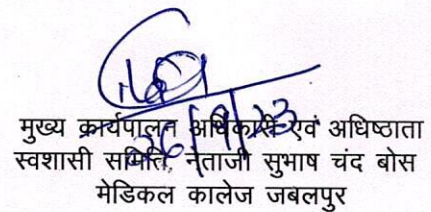 26/9/23
मुख्य कार्यपालन अधिकारी एवं अधिष्ठाता
स्वशासी समिति, नेताजी सुभाष चंद बोस
मेडिकल कालेज जबलपुर